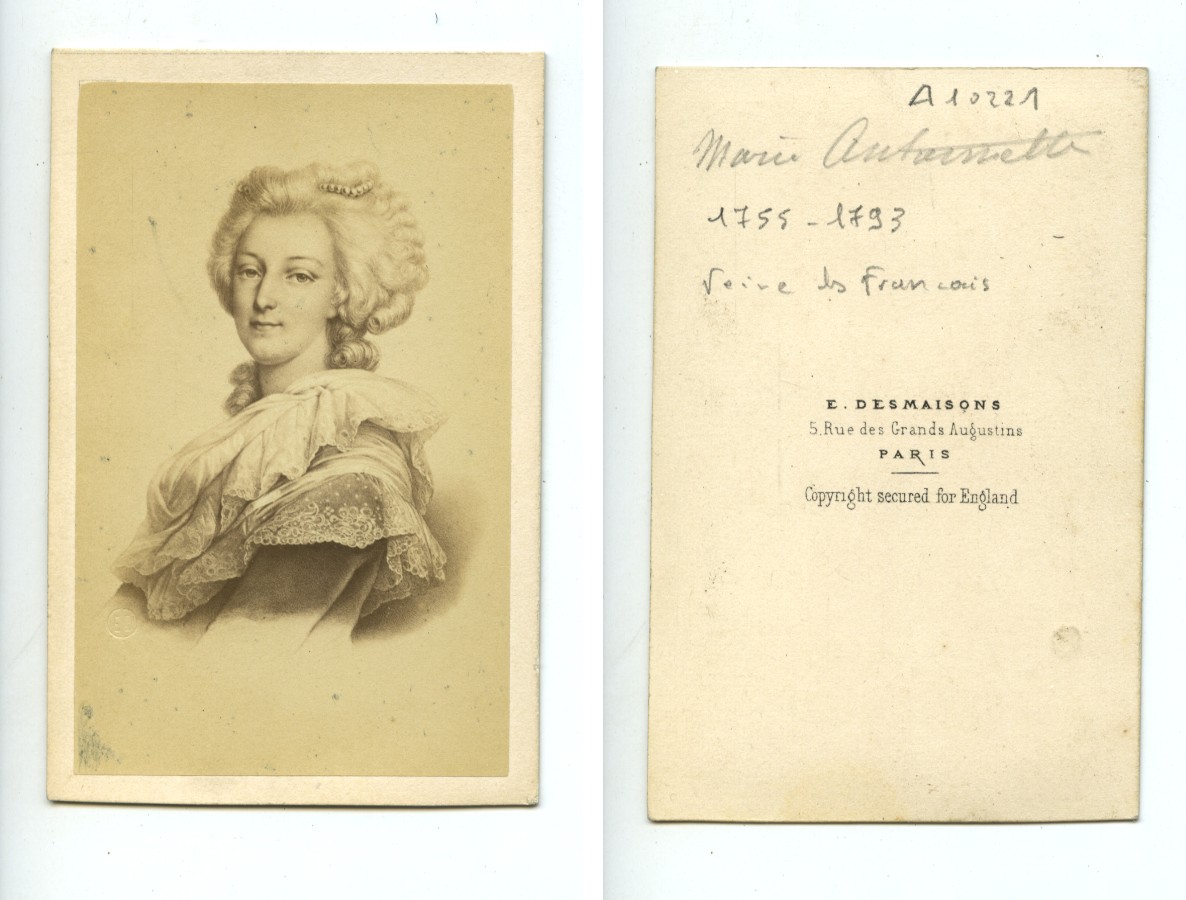 A10221
Marie Antoinette
1755 - 1793
reine des Francais
E. DESMAISONS
5, Rue des Grands Augustins
PARIS
Copyright secured for England